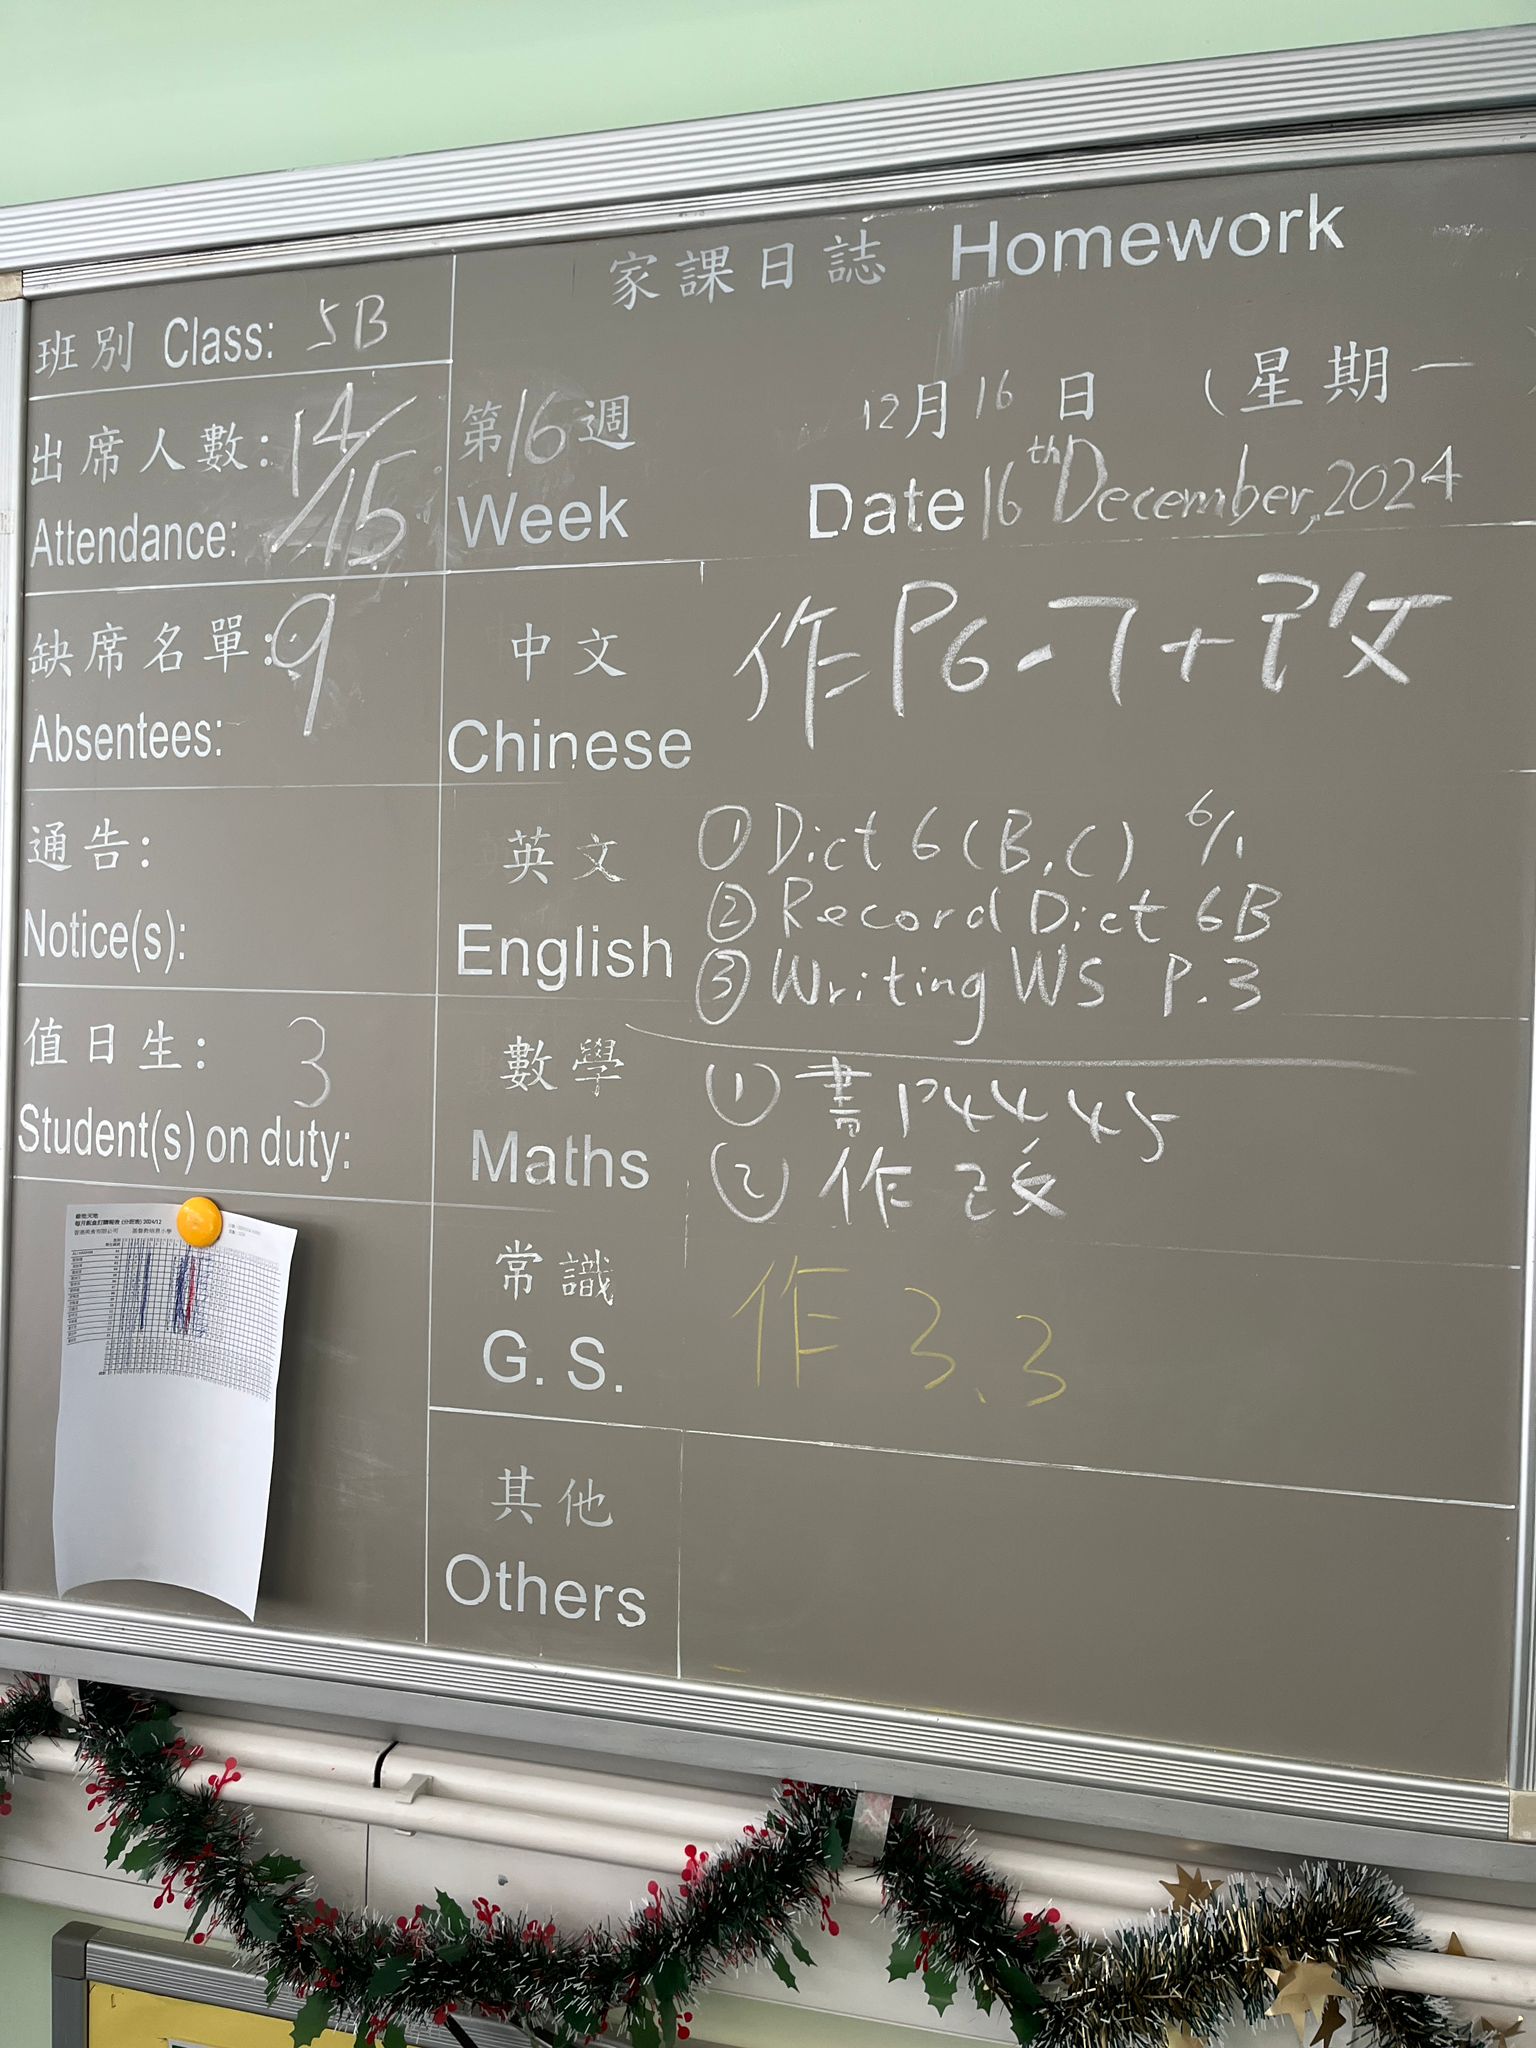 家課日誌 Homework
班別 Class: 5B
出席人數: 14/15
Attendance:
第16週
Week
12月16日 (星期一
Date 16th December, 2024
缺席名單: 9
Absentees:
中文
Chinese
作P6-7+改
通告:
Notice(s):
英文
English
① Dict 6 (B,C) 6/1
② Record Dict 6B
③ Writing WS P.3
值日生: 3
Student(s) on duty:
數學
Maths
① 書P44 45
② 作 改
常識
G. S.
作 3.3
其他
Others
每月飯盒訂購報表 (分班表) 2024/12